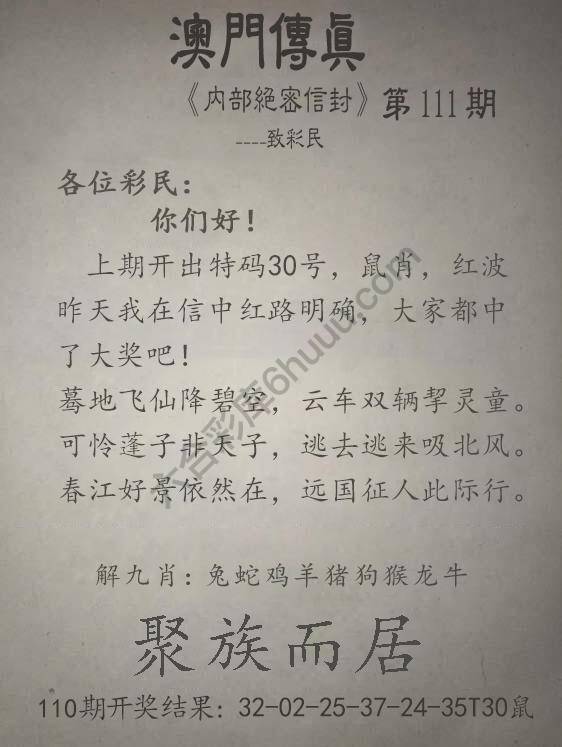 澳門傳眞
《内部絕密信封》第111期
----致彩民
各位彩民：
你们好！
上期开出特码30号，鼠肖，红波
昨天我在信中红路明确，大家都中
了大奖吧！
蓦地飞仙降碧空，云车双辆挈灵童。
可怜蓬子非天子，逃去逃来吸北风。
春江好景依然在，远国征人此际行。
六合彩库6huuu.com
解九肖：兔蛇鸡羊猪狗猴龙牛
聚族而居
110期开奖结果：32-02-25-37-24-35T30鼠